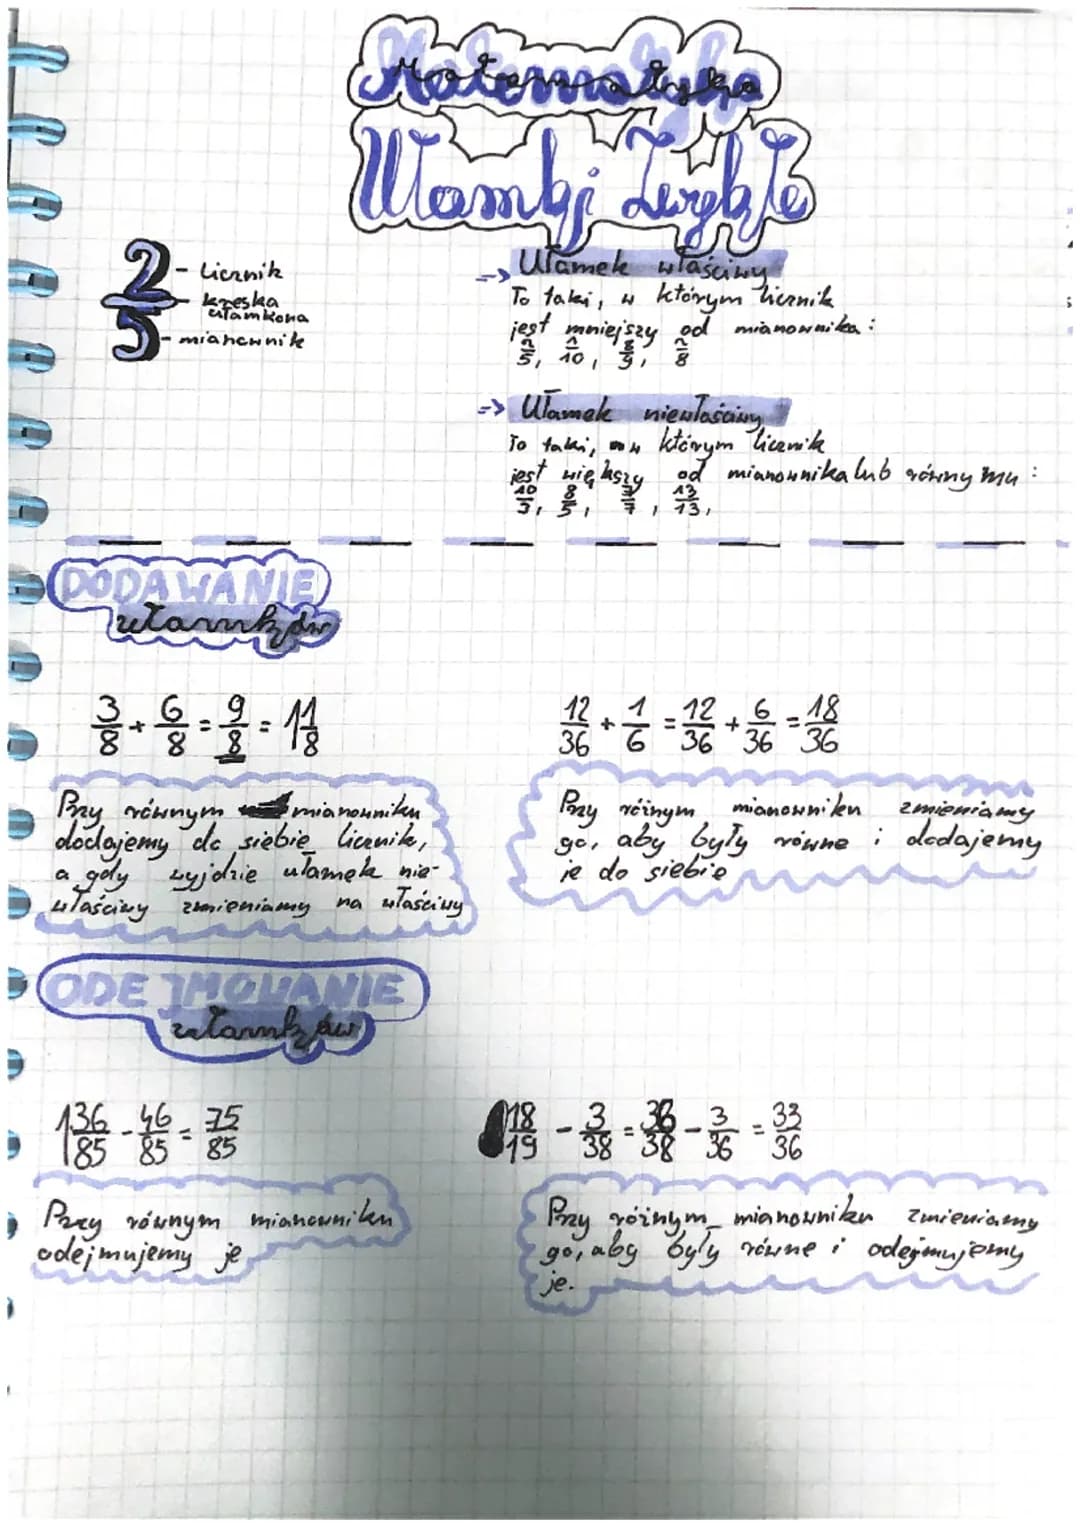 Matematyka
Ułamki Zwykłe
2 - licznik
kreska
ułamkowa
5 - mianownik
=> Ułamek właściwy
To taki, w którym licznik
jest mniejszy od mianownika:
=> Ułamek niewłaściwy
To taki, w którym licznik
jest większy od mianownika lub równy mu:
10/3, 8/5, 7/7, 13/13,
DODAWANIE
ułamków
3/8 + 6/8 = 9/8 = 1 1/8
Przy równym mianowniku
dodajemy do siebie licznik,
a gdy wyjdzie ułamek nie-
właściwy zmieniamy na właściwy
12/36 + 1/6 = 12/36 + 6/36 = 18/36
Przy różnym mianowniku zmieniamy
go, aby były równe i dodajemy
je do siebie
ODEJMOWANIE
ułamków
1 36/85 - 46/85 = 75/85
Przy równym mianowniku
odejmujemy je
18/19 - 3/38 = 36/38 - 3/36 = 33/36
Przy różnym mianowniku zmieniamy
go, aby były równe i odejmujemy
je.